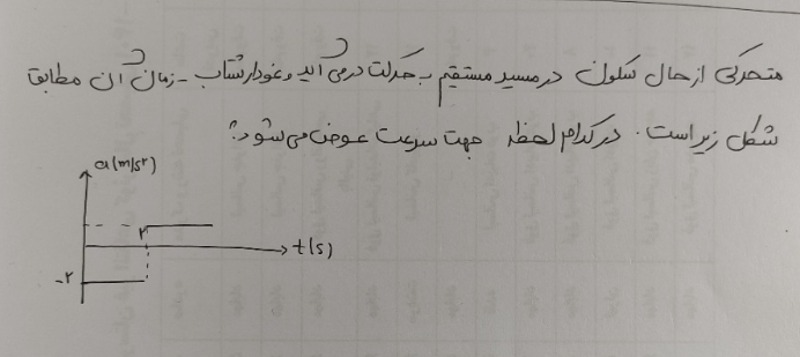 متحرکی از حال سکون در مسیر مستقیم به حرکت در می آید و نمودار شتاب - زمان آن مطابق
شکل زیر است. در کدام لحظه جهت سرعت عوض می شود؟
a(m/s²)
۲
t(s)
-۲